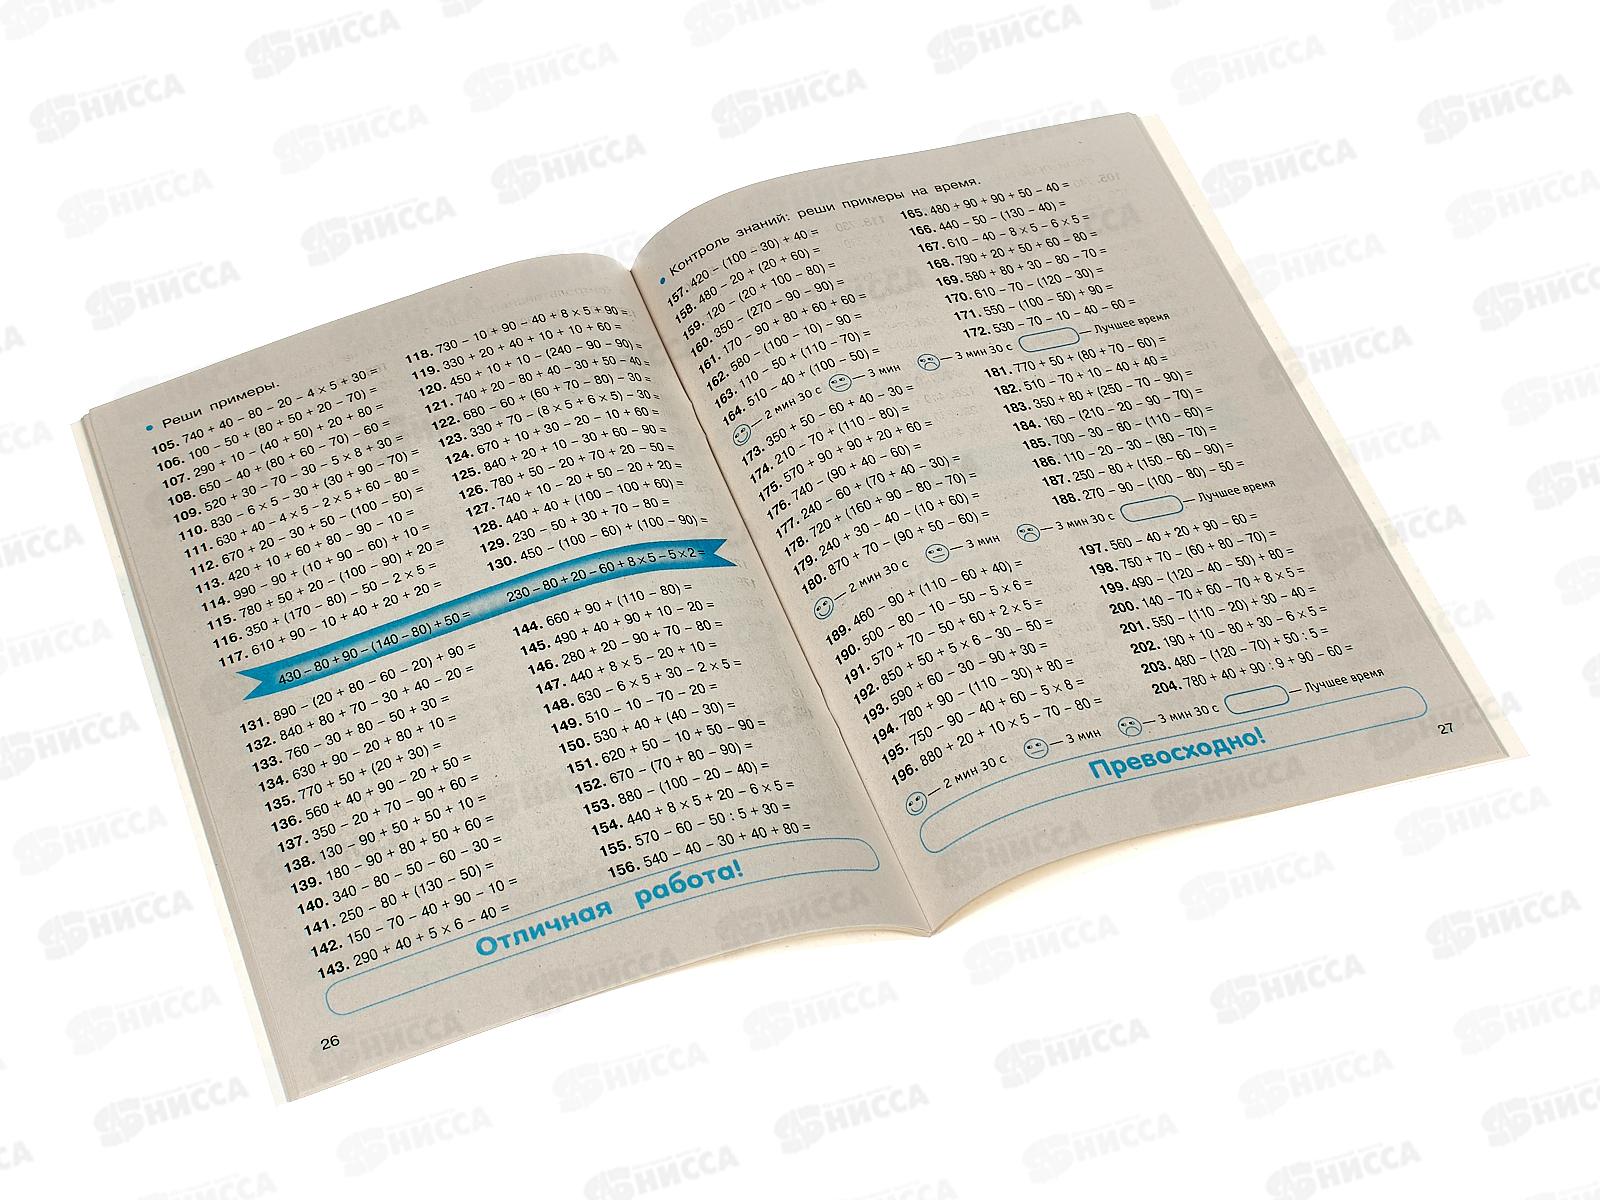 • Реши примеры.
105. 740 + 40 – 80 – 20 – 4 × 5 + 30 =
106. 100 – 50 + (80 + 50 + 20 – 70) =
107. 290 + 10 – (40 + 50) + 20 + 80 =
108. 650 – 40 + (80 + 60 – 70) – 60 =
109. 520 + 30 – 70 – 30 – 5 × 8 + 30 =
110. 830 – 6 × 5 – 30 + (30 + 90 – 70) =
111. 630 + 40 – 4 × 5 – 2 × 5 + 60 – 80 =
112. 670 + 20 – 30 + 50 – (100 – 50) =
113. 420 + 10 + 60 + 80 – 90 – 10 =
114. 990 – 90 + (10 + 90 – 60) + 10 =
115. 780 + 50 + 20 – (100 – 90) + 20 =
116. 350 + (170 – 80) – 50 – 2 × 5 =
117. 610 + 90 – 10 + 40 + 20 + 20 =
118. 730 – 10 + 90 – 40 + 8 × 5 + 90 =
119. 330 + 20 + 40 + 10 + 10 + 60 =
120. 450 + 10 + 10 – (240 – 90 – 90) =
121. 740 + 20 – 80 + 40 – 30 + 50 – 40 =
122. 680 – 60 + (60 + 70 – 80) – 30 =
123. 330 + 70 – (8 × 5 + 6 × 5) – 30 =
124. 670 + 10 + 30 – 20 – 10 + 60 =
125. 840 + 20 + 10 – 30 + 60 – 90 =
126. 780 + 50 – 20 + 70 + 20 – 50 =
127. 740 + 10 – 20 + 50 – 20 + 20 =
128. 440 + 40 + (100 – 100 + 60) =
129. 230 – 50 + 30 + 70 – 80 =
130. 450 – (100 – 60) + (100 – 90) =
430 – 80 + 90 – (140 – 80) + 50 =
230 – 80 + 20 – 60 + 8 × 5 – 5 × 2 =
131. 890 – (20 + 80 – 60 – 20) + 90 =
132. 840 + 80 + 70 – 30 + 40 – 20 =
133. 760 – 30 + 80 – 50 + 30 =
134. 630 + 90 – 20 + 80 + 10 =
135. 770 + 50 + (20 + 30) =
136. 560 + 40 + 90 – 20 + 50 =
137. 350 – 20 + 70 – 90 + 60 =
138. 130 – 90 + 50 + 50 + 10 =
139. 180 – 90 + 80 + 50 + 60 =
140. 340 – 80 – 50 – 60 – 30 =
141. 250 – 80 + (130 – 50) =
142. 150 – 70 – 40 + 90 – 10 =
143. 290 + 40 + 5 × 6 – 40 =
144. 660 + 90 + (110 – 80) =
145. 490 + 40 + 90 + 10 – 20 =
146. 280 + 20 – 90 + 70 – 80 =
147. 440 + 8 × 5 – 20 + 10 =
148. 630 – 6 × 5 + 30 – 2 × 5 =
149. 510 – 10 – 70 – 20 =
150. 530 + 40 + (40 – 30) =
151. 620 + 50 – 10 + 50 – 90 =
152. 670 – (70 + 80 – 90) =
153. 880 – (100 – 20 – 40) =
154. 440 + 8 × 5 + 20 – 6 × 5 =
155. 570 – 60 – 50 : 5 + 30 =
156. 540 – 40 – 30 + 40 + 80 =
Отличная работа!
26
• Контроль знаний: реши примеры на время.
157. 420 – (100 – 30) + 40 =
158. 480 – 20 + (20 + 60) =
159. 120 – (20 + 100 – 80) =
160. 350 – (270 – 90 – 90) =
161. 170 – 90 + 80 + 60 + 60 =
162. 580 – (100 – 10) – 90 =
163. 110 – 50 + (110 – 70) =
164. 510 – 40 + (100 – 50) =
165. 480 + 90 + 90 + 50 – 40 =
166. 440 – 50 – (130 – 40) =
167. 610 – 40 – 8 × 5 – 6 × 5 =
168. 790 + 20 + 50 + 60 – 80 =
169. 580 + 80 + 30 – 80 – 70 =
170. 610 – 70 – (120 – 30) =
171. 550 – (100 – 50) + 90 =
172. 530 – 70 – 10 – 40 – 60 =
— 2 мин 30 с — 3 мин — 3 мин 30 с — Лучшее время
173. 350 + 50 – 60 + 40 – 30 =
174. 210 – 70 + (110 – 80) =
175. 570 + 90 + 90 + 20 + 60 =
176. 740 – (90 + 40 – 60) =
177. 240 – 60 + (70 + 40 – 30) =
178. 720 + (160 + 90 – 80 – 70) =
179. 240 + 30 – 40 – (10 + 60) =
180. 870 + 70 – (90 + 50 – 60) =
181. 770 + 50 + (80 + 70 – 60) =
182. 510 – 70 + 10 – 40 + 40 =
183. 350 + 80 + (250 – 70 – 90) =
184. 160 – (210 – 20 – 90 – 70) =
185. 700 – 30 – 80 – (110 – 60) =
186. 110 – 20 – 30 – (80 – 70) =
187. 250 – 80 + (150 – 60 – 90) =
188. 270 – 90 – (100 – 80) – 50 =
— 2 мин 30 с — 3 мин — 3 мин 30 с — Лучшее время
189. 460 – 90 + (110 – 60 + 40) =
190. 500 – 80 – 10 – 50 – 5 × 6 =
191. 570 + 70 – 50 + 60 + 2 × 5 =
192. 850 + 50 + 5 × 6 – 30 – 50 =
193. 590 + 60 – 30 – 90 + 30 =
194. 780 + 90 – (110 – 30) + 80 =
195. 750 – 90 – 40 + 60 – 5 × 8 =
196. 880 + 20 + 10 × 5 – 70 – 80 =
197. 560 – 40 + 20 + 90 – 60 =
198. 750 + 70 – (60 + 80 – 70) =
199. 490 – (120 – 40 – 50) + 80 =
200. 140 – 70 + 60 – 70 + 8 × 5 =
201. 550 – (110 – 20) + 30 – 40 =
202. 190 + 10 – 80 + 30 – 6 × 5 =
203. 480 – (120 – 70) + 50 : 5 =
204. 780 + 40 + 90 : 9 + 90 – 60 =
— 2 мин 30 с — 3 мин — 3 мин 30 с — Лучшее время
Превосходно!
27